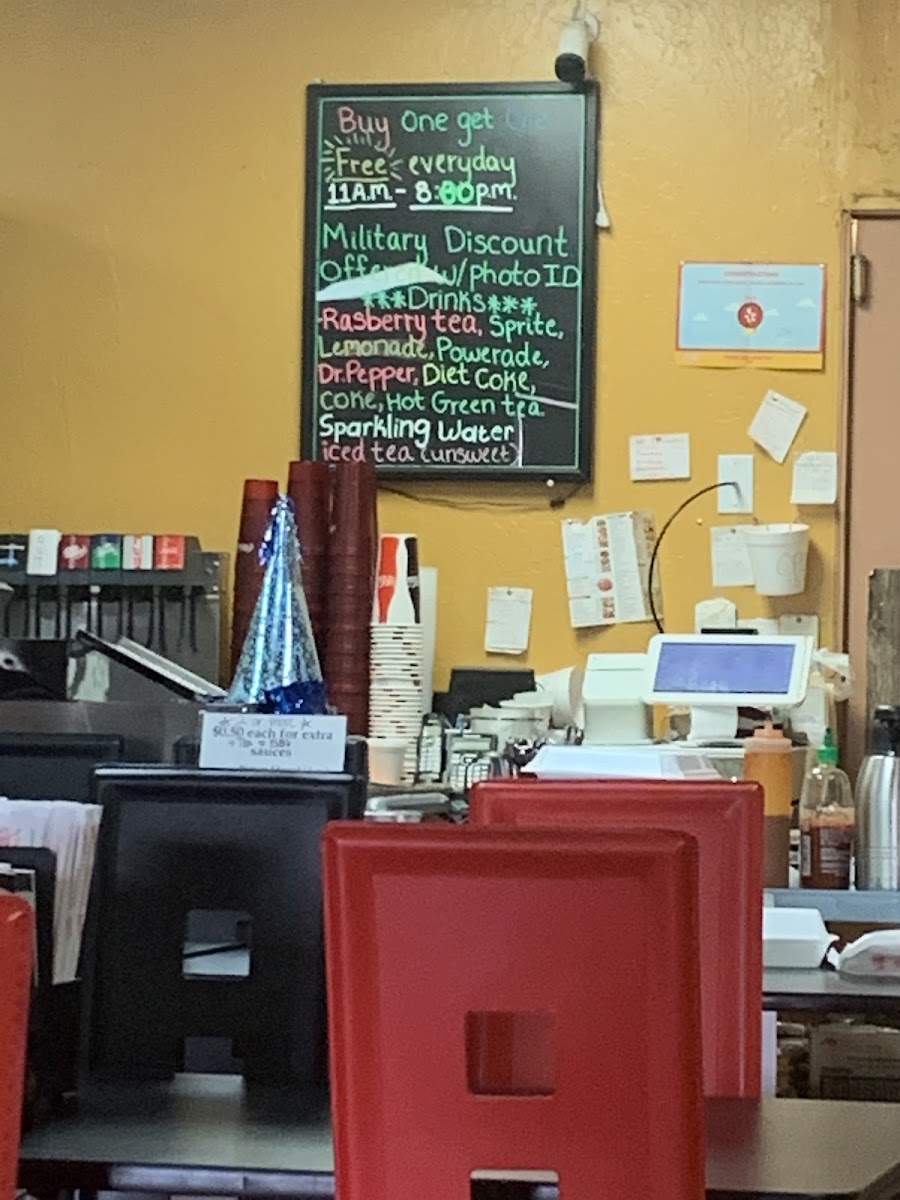 Buy One get One
Free everyday
11A.M. - 8:00p.m.
Military Discount
Offered w/photo ID
***Drinks***
Rasberry tea, Sprite,
Lemonade, Powerade,
Dr.Pepper, Diet Coke,
Coke, Hot Green tea
Sparkling Water
iced tea (unsweet)
$0.50 each for extra
sauces